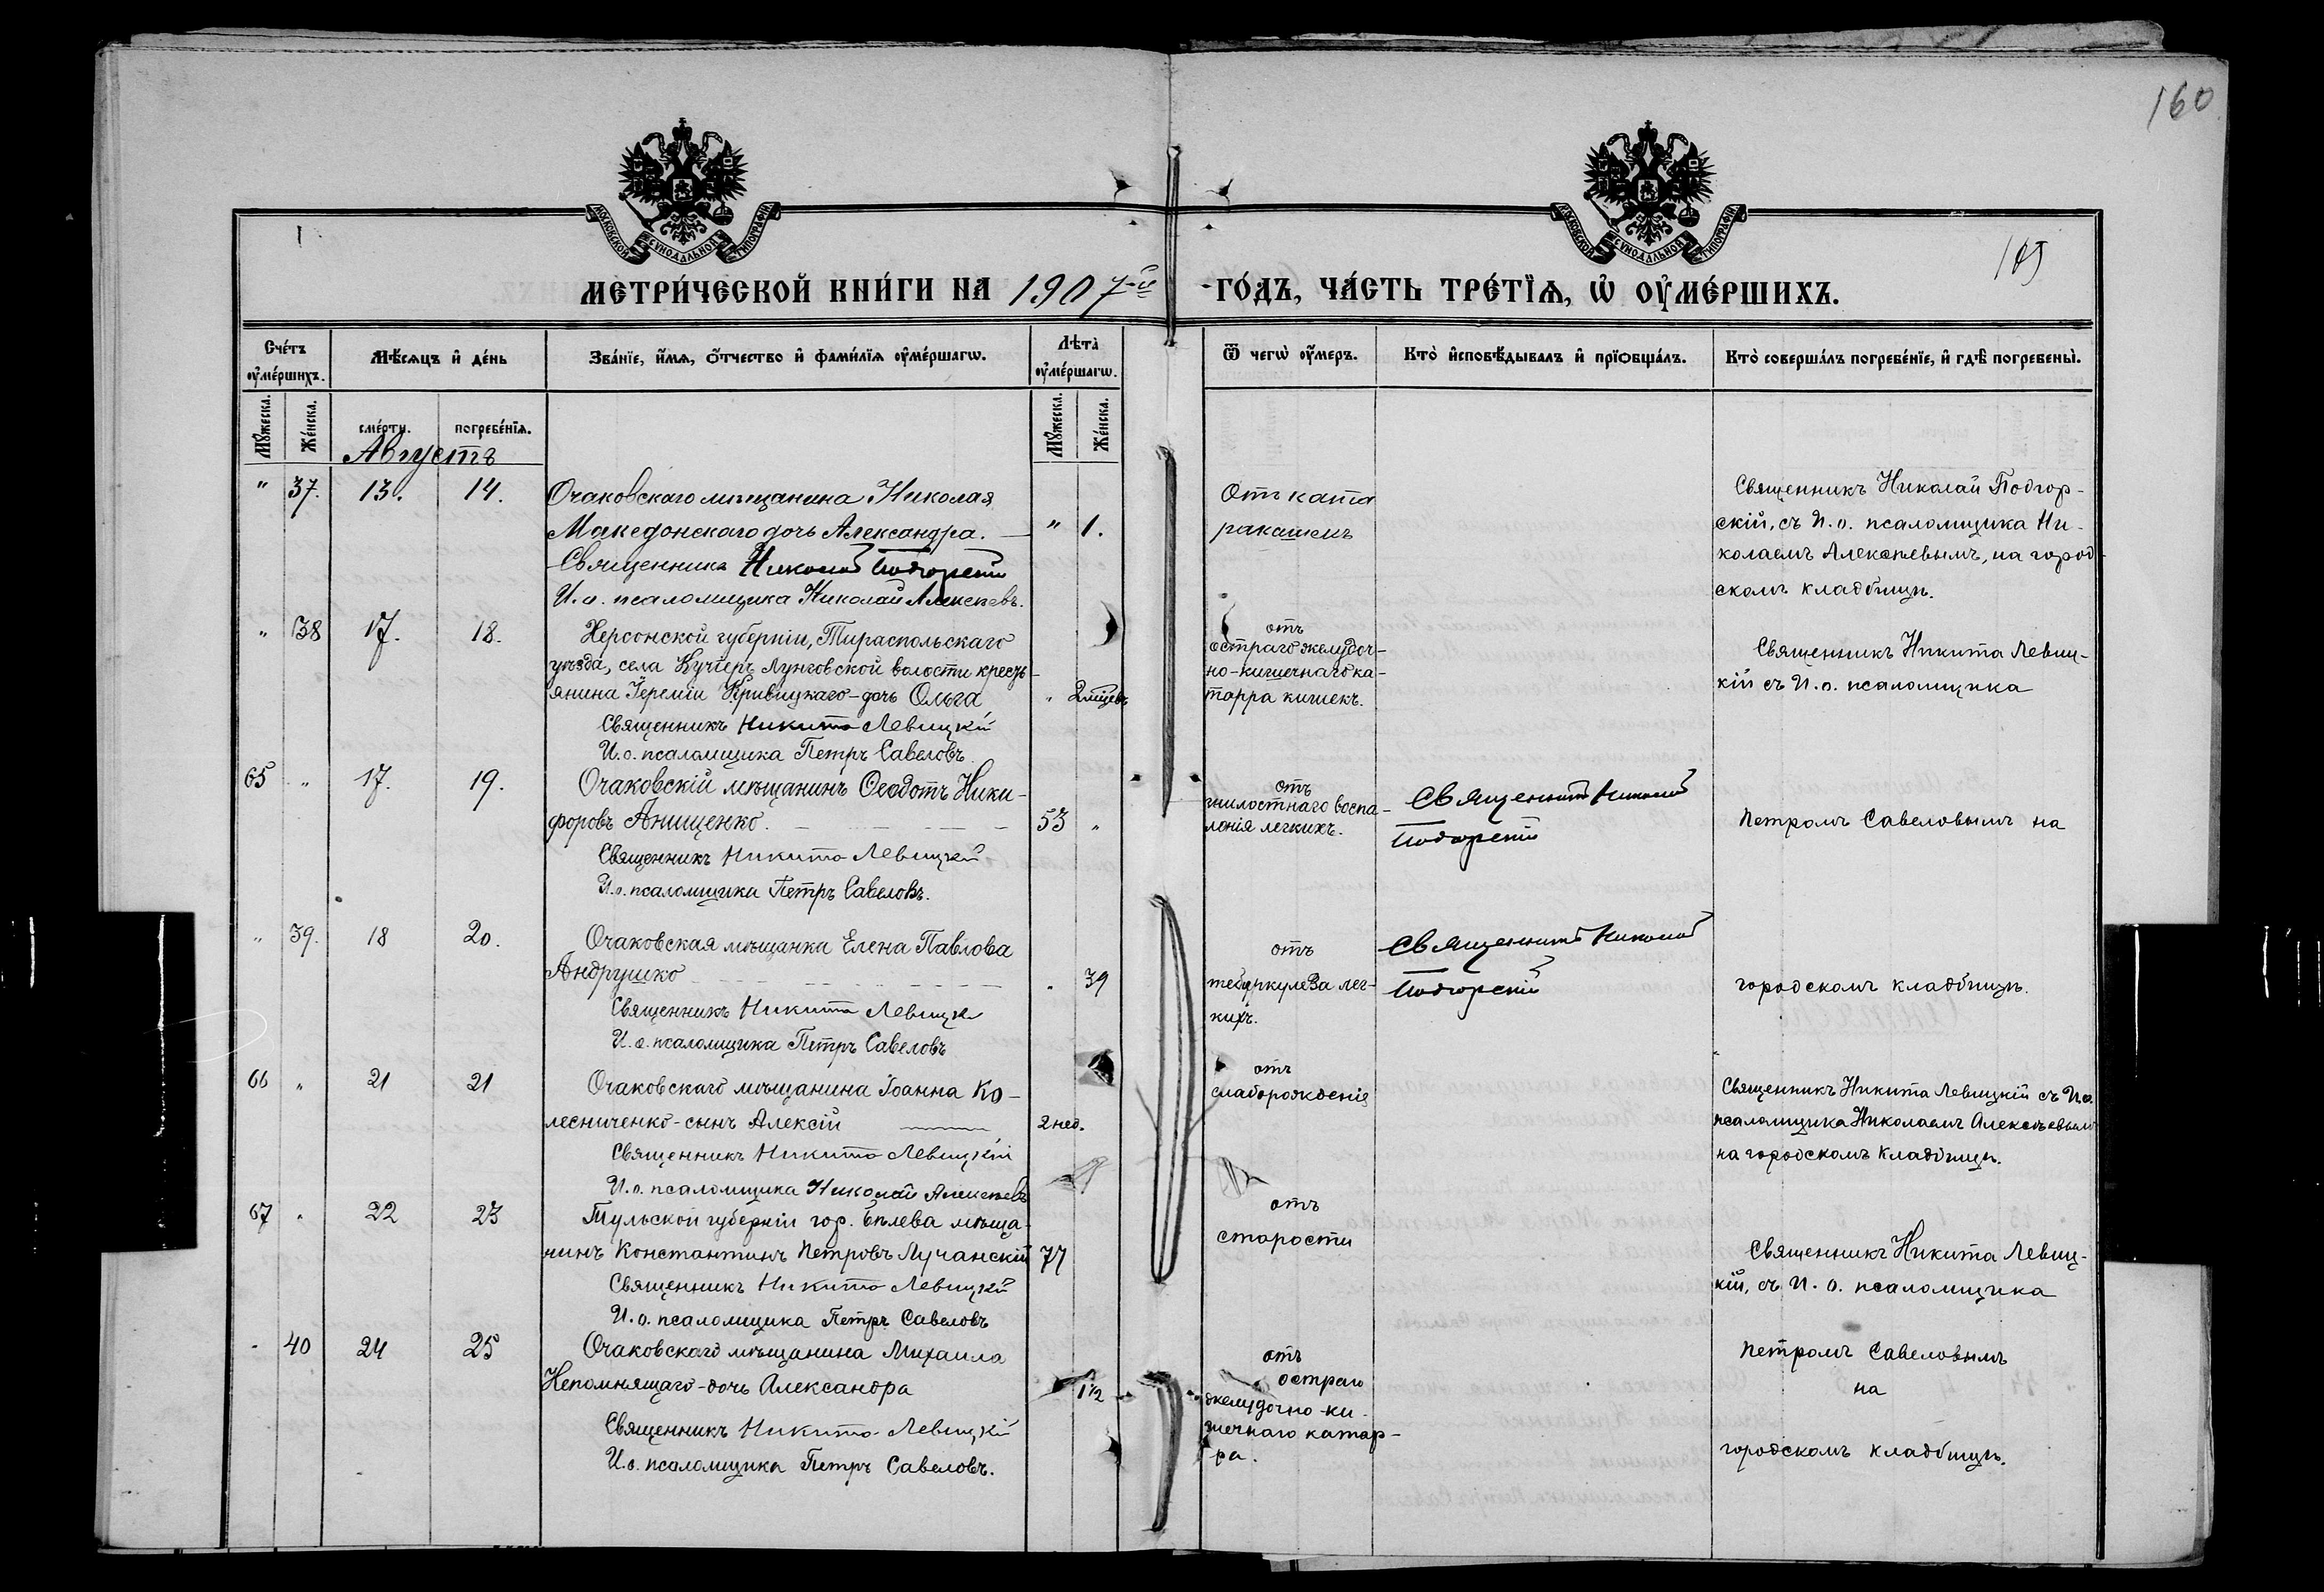 160
МОСКОВСКОЙ СѴНОДАЛЬНОЙ ТИПОГРАФІИ
МОСКОВСКОЙ СѴНОДАЛЬНОЙ ТИПОГРАФІИ
МЕТРИ́ЧЕСКОЙ КНИ́ГИ НА 1907-й ГО́ДЪ, ЧА́СТЬ ТРЕ́ТЇѦ, Ѡ҆ ОУ҆МЕ́РШИХЪ.
Сче́тъ оу҆ме́ршихъ.
Мѣ́сяцъ и҆ де́нь
Зва́нїе, и҆́мѧ, ѻ҆́тчество и҆ фами́лїѧ оу҆ме́ршагѡ.
Лѣта̀ оу҆ме́ршагѡ.
Ѿ чегѡ̀ оу҆́меръ.
Кто̀ и҆сповѣ́дывалъ и҆ прїѡбща́лъ.
Кто̀ соверша́лъ погребе́нїе, и҆ гдѣ̀ погребены̀.
Мꙋ́жеска.
Же́нска.
сме́рти.
погребе́нїѧ.
Мꙋ́жеска.
Же́нска.
Августъ
" 37. 13. 14.
Очаковскаго мѣщанина Николая
Македонскаго дочь Александра. " 1.
Священникъ Николай Подгорскій
И. о. псаломщика Николай Алексѣевъ.
Отъ ката
ракашекъ
Священникъ Николай Подгор-
скій, съ И. о. псаломщика Ни-
колаемъ Алексѣевымъ, на город-
скомъ кладбищѣ.
" 38 17. 18.
Херсонской губерніи, Тираспольскаго
уѣзда, села Кучіеръ Лунговской волости кресть-
янина Іереміи Кривицкаго - дочь Ольга " 2 мѣсев
Священникъ Никита Левицкій
И. о. псаломщика Петръ Савеловъ.
отъ
остраго желудоч-
но-кишечнаго ка-
тарра кишекъ.
Священникъ Никита Левиц-
кій съ И. о. псаломщика
65 " 17. 19.
Очаковскій мѣщанинъ Ѳеодотъ Ники-
форовъ Анищенко. 53 "
Священникъ Никита Левицкій
И. о. псаломщика Петръ Савеловъ.
отъ
гнилостнаго воспа-
ленія легкихъ.
Священникъ Николай
Подгорскій
Петромъ Савеловымъ на
" 39. 18 20.
Очаковская мѣщанка Елена Павлова
Андрушко " 39
Священникъ Никита Левицкій
И. о. псаломщика Петръ Савеловъ
отъ
теберкулеза лег-
кихъ.
Священникъ Николай
Подгорскій
городскомъ кладбищѣ.
66 " 21 21
Очаковскаго мѣщанина Іоанна Ко-
лесниченко - сынъ Алексій 2 нед.
Священникъ Никита Левицкій
И. о. псаломщика Николай Алексѣевъ
отъ
слаборожденія
Священникъ Никита Левицкій съ И. о.
псаломщика Николаемъ Алексѣевымъ
на городскомъ кладбищѣ.
67 " 22 23
Тульской губерніи гор. Бѣлева мѣща-
нинъ Константинъ Петровъ Лучанскій 77
Священникъ Никита Левицкій
И. о. псаломщика Петръ Савеловъ
отъ
старости
Священникъ Никита Левиц-
кій, съ И. о. псаломщика
" 40 24 25
Очаковскаго мѣщанина Михаила
Непомнящаго - дочь Александра 1 1/2
Священникъ Никита Левицкій
И. о. псаломщика Петръ Савеловъ.
отъ
остраго
желудочно-ки-
шечнаго катар-
ра.
Петромъ Савеловымъ
на
городскомъ кладбищѣ.